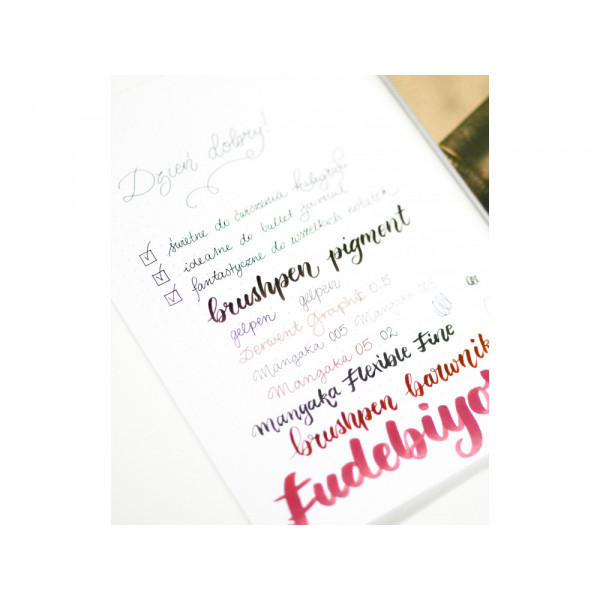 Dzień dobry!
świetne do ćwiczenia kaligrafii
idealne do bullet journal
fantastyczne do wszelkich notatek
brushpen pigment
gelpen gelpen
Derwent Graphik 0.5
Mangaka 005 Mangaka 003
Mangaka 05 02
Mangaka Flexible Fine
brushpen barwnik
Fudebiyo